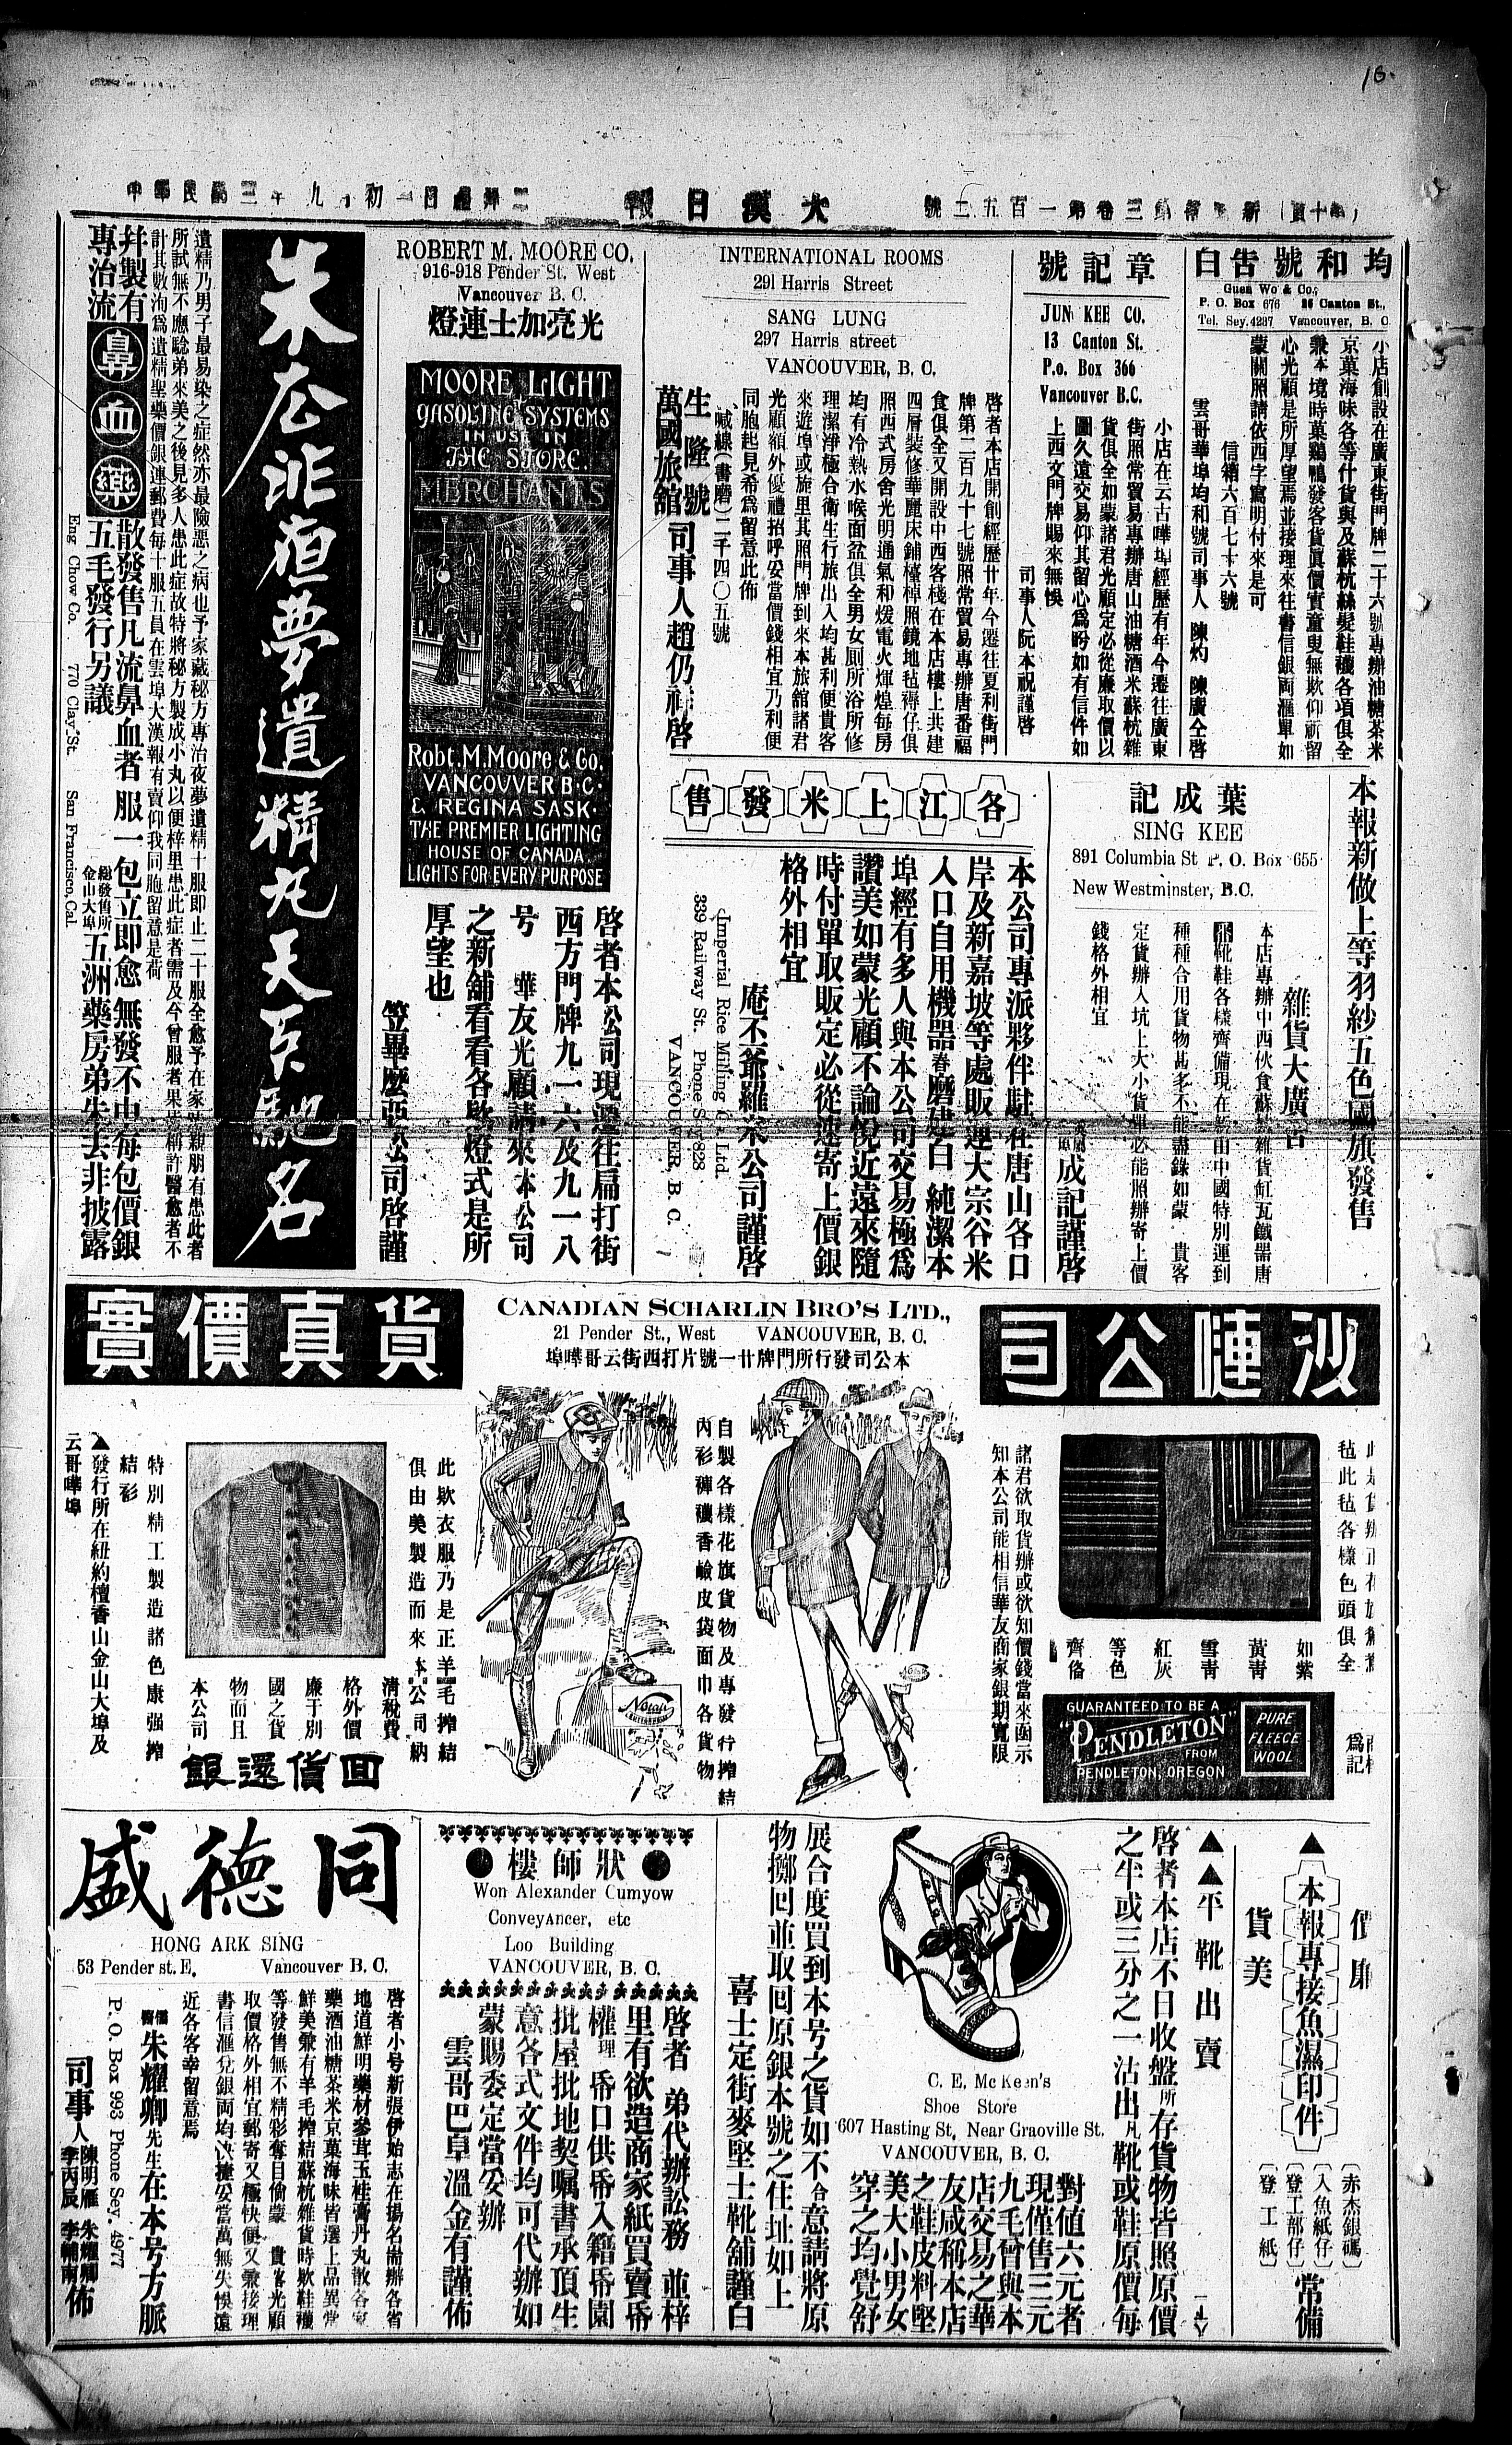 大漢日報
均和號告白
Guen Wo & Co.,
P. O. Box 676 26 Canton St.,
Tel. Sey. 4287 Vancouver, B. C.
小店創設在廣東街門牌二十六號專辦油糖茶米
京菓海味各等什貨與及蘇杭絲髮鞋襪各項俱全
兼本境時菓鷄鴨發客貨眞價實童叟無欺仰祈留
心光顧是所厚望焉並接理來往書信銀両滙單如
蒙關照請依西字寫明付來是可
信箱六百七十六號
雲哥華埠均和號司事人 陳灼 陳廣仝啓
章記號
JUN KEE CO.
13 Canton St.
P.o. Box 366
Vancouver B.C.
小店在云古嘩埠經歷有年今遷往廣東
街照常貿易專辦唐山油糖酒米蘇杭雜
貨俱全如蒙諸君光顧定必從廉取價以
圖久遠交易仰其留心爲盼如有信件如
上西文門牌賜來無悞
司事人阮本祝謹啓
INTERNATIONAL ROOMS
291 Harris Street
SANG LUNG
297 Harris street
VANCOUVER, B. C.
啓者本店開創經歷廿年今遷往夏利街門
牌第二百九十七號照常貿易專辦唐番福
食俱全又開設中西客棧在本店樓上共建
四層裝修華麗床鋪檯椅照鏡地毡褥仔俱
照西式房舍光明通氣和煖電火煇煌每房
均有冷熱水喉面盆俱全男女厠所浴所修
理潔淨極合衛生行旅出入均甚利便貴客
來遊埠或施里其照門牌到來本旅舘諸君
光顧額外優禮招呼妥當價錢相宜乃利便
同胞起見希爲留意此佈
喊線(書磨)二千四〇五號
生隆號
萬國旅舘
司事人趙仍祥啓
ROBERT M. MOORE CO.
916-918 Pender St. West
Vancouver B. C.
光亮加士連燈
MOORE LIGHT
GASOLINE SYSTEMS
IN USE IN
THE STORE.
MERCHANTS
Robt. M. Moore & Co.
VANCOUVER B·C·
& REGINA SASK·
THE PREMIER LIGHTING
HOUSE OF CANADA.
LIGHTS FOR EVERY PURPOSE
啓者本公司現遷往扁打街
西方門牌九一六及九一八
号 華友光顧請來本公司
之新舖看看各欵燈式是所
厚望也
笠畢麼亞公司啓謹
朱公非夜夢遺精丸天下馳名
遺精乃男子最易染之症然亦最險惡之病也予家藏秘方專治夜夢遺精十服即止二十服全愈予在家時親朋有患此者
所試無不應騐弟來美之後見多人患此症故特將秘方製成小丸以便梓里患此症者需及今曾服者果皆稱許醫愈者不
計其數洵爲遺精聖藥價銀連郵費每十服五員在雲埠大漢報有賣仰我同胞留意是荷
幷製有
專治流
鼻血藥
散發售凡流鼻血者服一包立即愈無發不由每包價銀
五毛發行另議
總發售所
金山大埠
五洲藥房弟朱去非披露
Eng Chow Co. 770 Clay St. San Francisco, Cal.
本報新做上等羽紗五色國旗發售
葉成記
SING KEE
891 Columbia St P. O. Box 655
New Westminster, B.C.
雜貨大廣告
本店專辦中西伙食蘇杭雜貨缸瓦鐵器唐
靴鞋各樣齊備現在新由中國特別運到
種種合用貨物甚多不能盡錄如蒙 貴客
定貨辦入坑上大小貨單必能照辦寄上價
錢格外相宜
成記謹啓
各江上米發售
本公司專派夥伴駐在唐山各口
岸及新嘉坡等處販運大宗谷米
入口自用機器舂磨建白純潔本
埠經有多人與本公司交易極爲
讚美如蒙光顧不論悅近遠來隨
時付單取販定必從速寄上價銀
格外相宜
庵丕爺羅米公司謹啓
Imperial Rice Milling Co. Ltd.
339 Railway St. Phone Sey 828
VANCOUVER, B. C.
沙嗹公司
CANADIAN SCHARLIN BRO'S LTD.,
21 Pender St., West VANCOUVER, B. C.
本公司發行所門牌廿一號片打西街云哥嘩埠
貨真價實
毡此毡各樣色頭俱全
如紫
黃青
雪青
紅灰
等色
齊俻
爲記
GUARANTEED TO BE A
"PENDLETON"
FROM
PENDLETON, OREGON
PURE
FLEECE
WOOL
諸君欲取貨辦或欲知價錢當來函示
知本公司能相信華友商家銀期寬限
自製各樣花旗貨物及專發行搾結
內衫褲襪香鹼皮袋面巾各貨物
此欵衣服乃是正羊毛搾結
俱由美製造而來本公司納
清稅費
格外價
廉于別
國之貨
物而且
本公司
回貨還銀
特別精工製造諸色康强搾
結衫
▲發行所在紐約檀香山金山大埠及
云哥嘩埠
價廉
▲本報專接魚濕印件
貨美
(赤杰銀碼)
(入魚紙仔)
(登工部仔)
(登工紙)
常備
▲▲平靴出賣
啓者本店不日收盤所存貨物皆照原價
之半或三分之一沽出凡靴或鞋原價每
對值六元者
現僅售三元
九毛曾與本
店交易之華
友咸稱本店
之鞋皮料堅
美大小男女
穿之均覺舒
展合度買到本号之貨如不合意請將原
物擲回並取回原銀本號之住址如上
喜士定街麥堅士靴舖謹白
C. E. Mc Keen's
Shoe Store
607 Hasting St, Near Graoville St.
VANCOUVER, B. C.
狀師樓
Won Alexander Cumyow
Conveyancer, etc
Loo Building
VANCOUVER, B. C.
啓者 弟代辦訟務 並梓
里有欲造商家紙買賣帋
權理 帋口供帋入籍帋園
批屋批地契嘱書承頂生
意各式文件均可代辦如
蒙賜委定當妥辦
雲哥巴阜溫金有謹佈
同德盛
HONG ARK SING
53 Pender st. E, Vancouver B. C.
啓者小号新張伊始志在揚名耑辦各省
地道鮮明藥材參茸玉桂膏丹丸散各家
藥酒油糖茶米京菓海味皆選上品異常
鮮美兼有羊毛搾結蘇杭雜貨時欵鞋襪
等發售無不精彩奪目偷蒙 貴客光顧
取價格外相宜郵寄又極快便又兼接理
書信滙兌銀両均快捷妥當萬無失悞遠
近各客幸留意焉
儒醫朱耀卿先生在本号方脈
P. O. Box 993 Phone Sey. 4977
司事人 陳明雁 朱耀卿 李丙辰 李輔南 佈